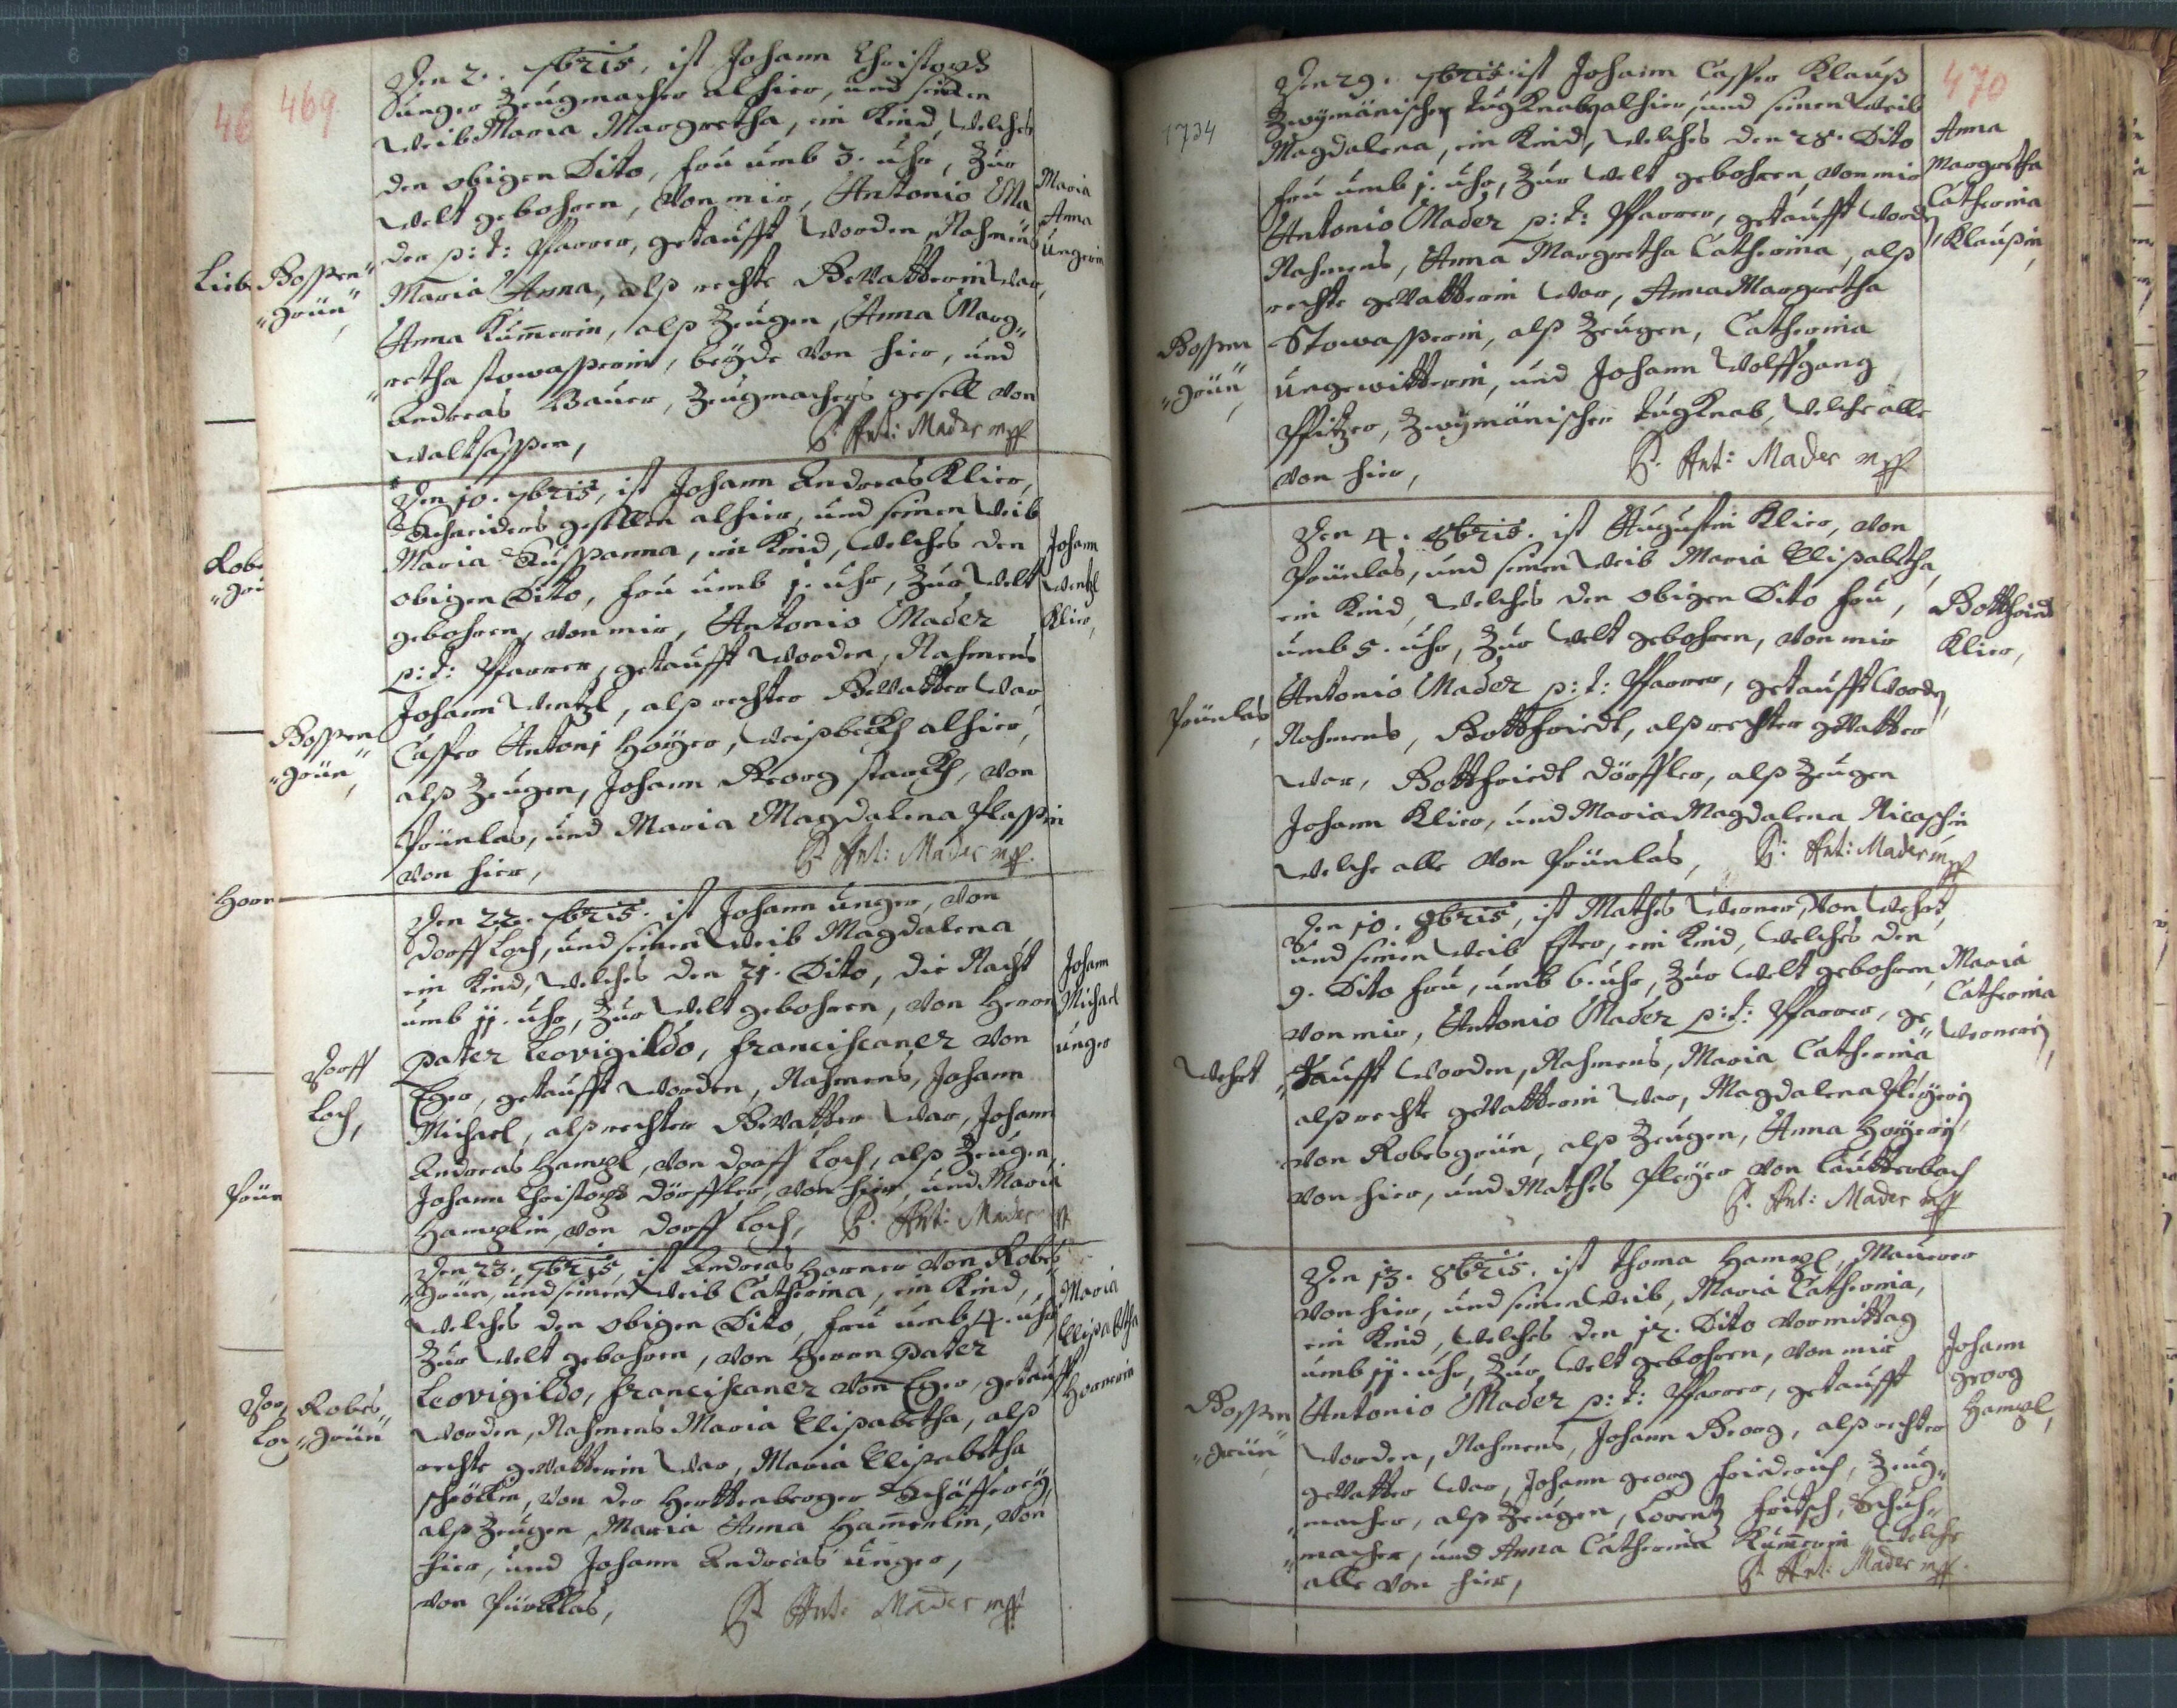 469
Den 2. 7bris, ist Johann Christoph
Unger Zeugmacher alhier, und seinen
Weib Maria Margretha, ein Kind, welches
den obigen Dito, fru umb 3. uhr, Zur
Welt gebohren, Von mir, Antonio Ma
der p: t: Pfarrer, getaufft worden, Nahmens
Maria Anna, alß rechte Gevatterin war,
Anna Kum̄erin, alß Zeugen, Anna Marg„
„retha stowasserin, beyde von hier, und
Andreas Bauer, Zeugmachers gesell von
Waltsassen,
P. Ant: Mader mpp
Bossen„
„grün,
Maria
Anna
Ungerin
Den 10. 7bris, ist Johann Andreas Klier,
Schneiders gesellen alhier, und seinen Weib
Maria Susanna, ein Kind, welches den
obigen Dito, fru umb 1. uhr, Zur Welt
gebohren, von mir, Antonio Mader
p: t: Pfarrer, getaufft worden, Nahmens
Johann Wentzl, alß rechter Gevatter war,
Casper Antonj Hoyer, Weißbeckh alhier,
alß Zeugen, Johann Georg starckh, von
Prünlas, und Maria Magdalena Plassin
von hier,
P. Ant: Mader mpp.
Bossen
„grün,
Johann
Wentzl
Klier,
Den 22. 7bris. ist Johann Unger, von
Dorff Loch, und seinen Weib Magdalena
ein Kind, welches den 21. Dito, die Nacht
umb 11. uhr, Zur Welt gebohren, von Herrn
pater Leovigildo, franciscaner von
Eger, getaufft worden, Nahmens, Johann
Michael, alß rechter Gevatter war, Johann
Andreas Hampl, von Dorff Loch, alß Zeugen,
Johann Christoph Dörffler, von hier, und Maria
Hamplin, von Dorff Loch, P. Ant: Mader
Dorff
Loch,
Johann
Michael
Unger
Den 23. 7bris, ist Andreas Horner von Robes
„grün, und seinen Weib Catherina, ein Kind,
welches den obigen Dito, fru umb 4. uhr,
Zur Welt gebohren, von Herrn pater
Leovigildo, franciscaner von Eger, getaufft
worden, Nahmens Maria Elisabetha, alß
rechte gevatterin war, Maria Elisabetha
von der Herttenberger Schäfferey,
alß Zeugen, Maria Anna Ham̄erlin, von
hier, und Johann Andreas Unger,
von Pürklas,
P. Ant: Mader mpp
Robes„
„grün
Maria
Elisabetha
Hornerin
470
1734
Den 29. 7bris. ist Johann Casper Klauß
Zwymänischer tugknab alhier, und seinen Weib
Magdalena, ein Kind, welches den 28. Dito
fru umb 1. uhr, Zur Welt gebohren, von mir
Antonio Mader p: t: Pfarrer, getaufft worden
Nahmens, Anna Margretha Catherina, alß
rechte gevatterin war, Anna Margretha
Stowasserin, alß Zeugen, Catherina
Ungewitterin, und Johann Wolffgang
Pfitzer, Zwymänischer tugknab, welche alle
von hier,
P. Ant: Mader mpp
Bossen
„grün,
Anna
Margretha
Catherina
Klaußin,
Den 4. 8bris. ist Augustin Klier, von
Prünlas, und seinen Weib Maria Elisabetha,
ein Kind, welches den obigen Dito fru,
umb 5. uhr, Zur Welt gebohren, von mir
Antonio Mader p: t: Pfarrer, getaufft worden,
Nahmens, Gottfriedt, alß rechter gevatter
war, Gottfriedt Dörffler, alß Zeugen
Johann Klier, und Maria Magdalena
welche alle von Prünlas, P: Ant: Mader mpp
Prünlas,
Gottfriedt
Klier,
Den 10. 8bris, ist Mathes Werner, von Wehet,
und seinen Weib Ester, ein Kind, welches den
9. Dito fru, umb 6. uhr, Zur Welt gebohren,
von mir, Antonio Mader p: t: Pfarrer, ge„
„taufft worden, Nahmens, Maria Catherina
alß rechte gevatterin war, Magdalena Pleyerin
von Robesgrün, alß Zeugen, Anna Hoyerin,
von hier, und Mathes Pleyer von Lautterbach
P. Ant: Mader mpp
Wehet
Maria
Catherina
Wernerin,
Den 13. 8bris. ist Thoma Hampl, Maurer
von hier, und seinen Weib, Maria Catherina,
ein Kind, welches den 12. Dito vormittag
umb 11. uhr, Zur Welt gebohren, von mir
Antonio Mader p: t: Pfarrer, getaufft
worden, Nahmens, Johann Georg, alß rechter
gevatter war, Johann georg friederich, Zeug„
„macher, alß Zeugen, Lorentz fritsch, Schuh„
„macher, und Anna Catherina Kum̄erin welche
alle von hier,
P. Ant: Mader mpp.
Bossen
„grün,
Johann
georg
Hampl,